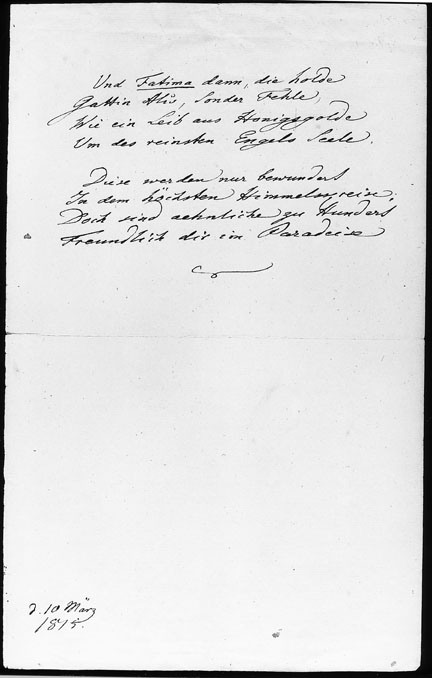 Und Fatima dann, die holde
Gattin Alis, sonder Fehle,
Wie ein Leib aus Honiggolde
Um des reinsten Engels Seele.
Diese werden nur bewundert
In dem höchsten Himmelskreise;
Doch sind aehnliche zu Hundert
Freundlich dir im Paradeise
d. 10 März
1815.